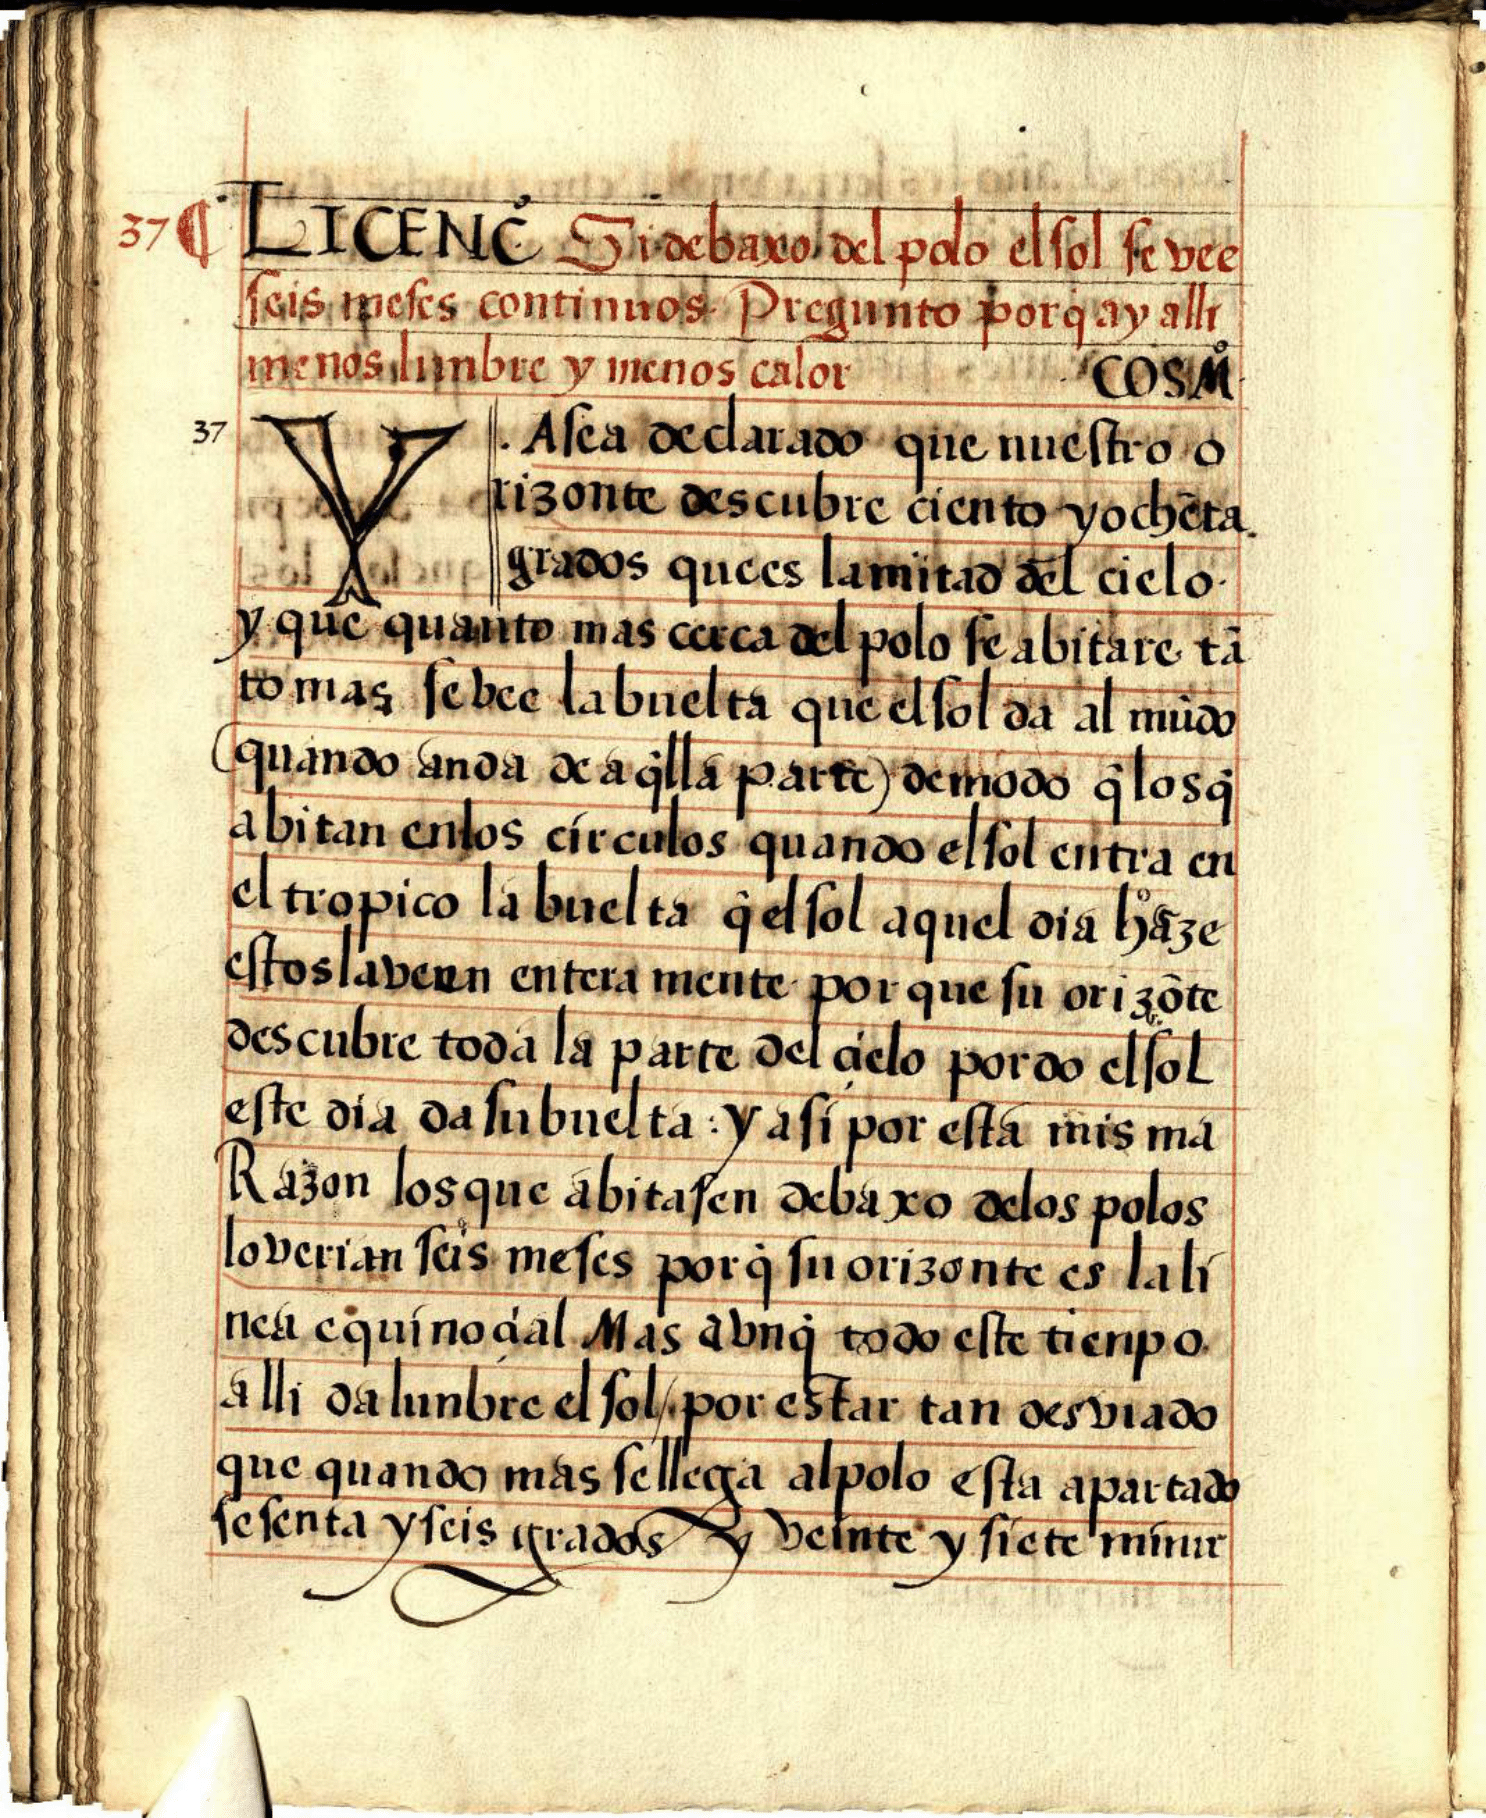 37 ¶ LICENC̊ Si debaxo del polo el sol se vee
seis meses continuos. Pregunto porq̃ ay alli
menos lunbre y menos calor COSM̊
37 YA sea declarado que nuestro o
rizonte descubre ciento y ochẽta
grados que es la mitad del cielo.
y que quanto mas cerca del polo se abitare tã
to mas se vee la buelta que el sol da al mũdo
(quando anda de aq̃lla parte) de modo q̃ los q̃
abitan en los circulos quando el sol entra en
el tropico la buelta q̃ el sol aquel dia haze
estos la veen entera mente porque su orizõte
descubre toda la parte del cielo por do el sol
este dia da su buelta: y asi por esta misma
Razon los que abitasen debaxo de los polos
lo verian seis meses porq̃ su orizonte es la li
nea equinocial Mas avnq̃ todo este tienpo
alli da lunbre el sol/. por estar tan desviado
que quando mas se llega al polo esta apartado
sesenta y seis grados y veinte y siete minut